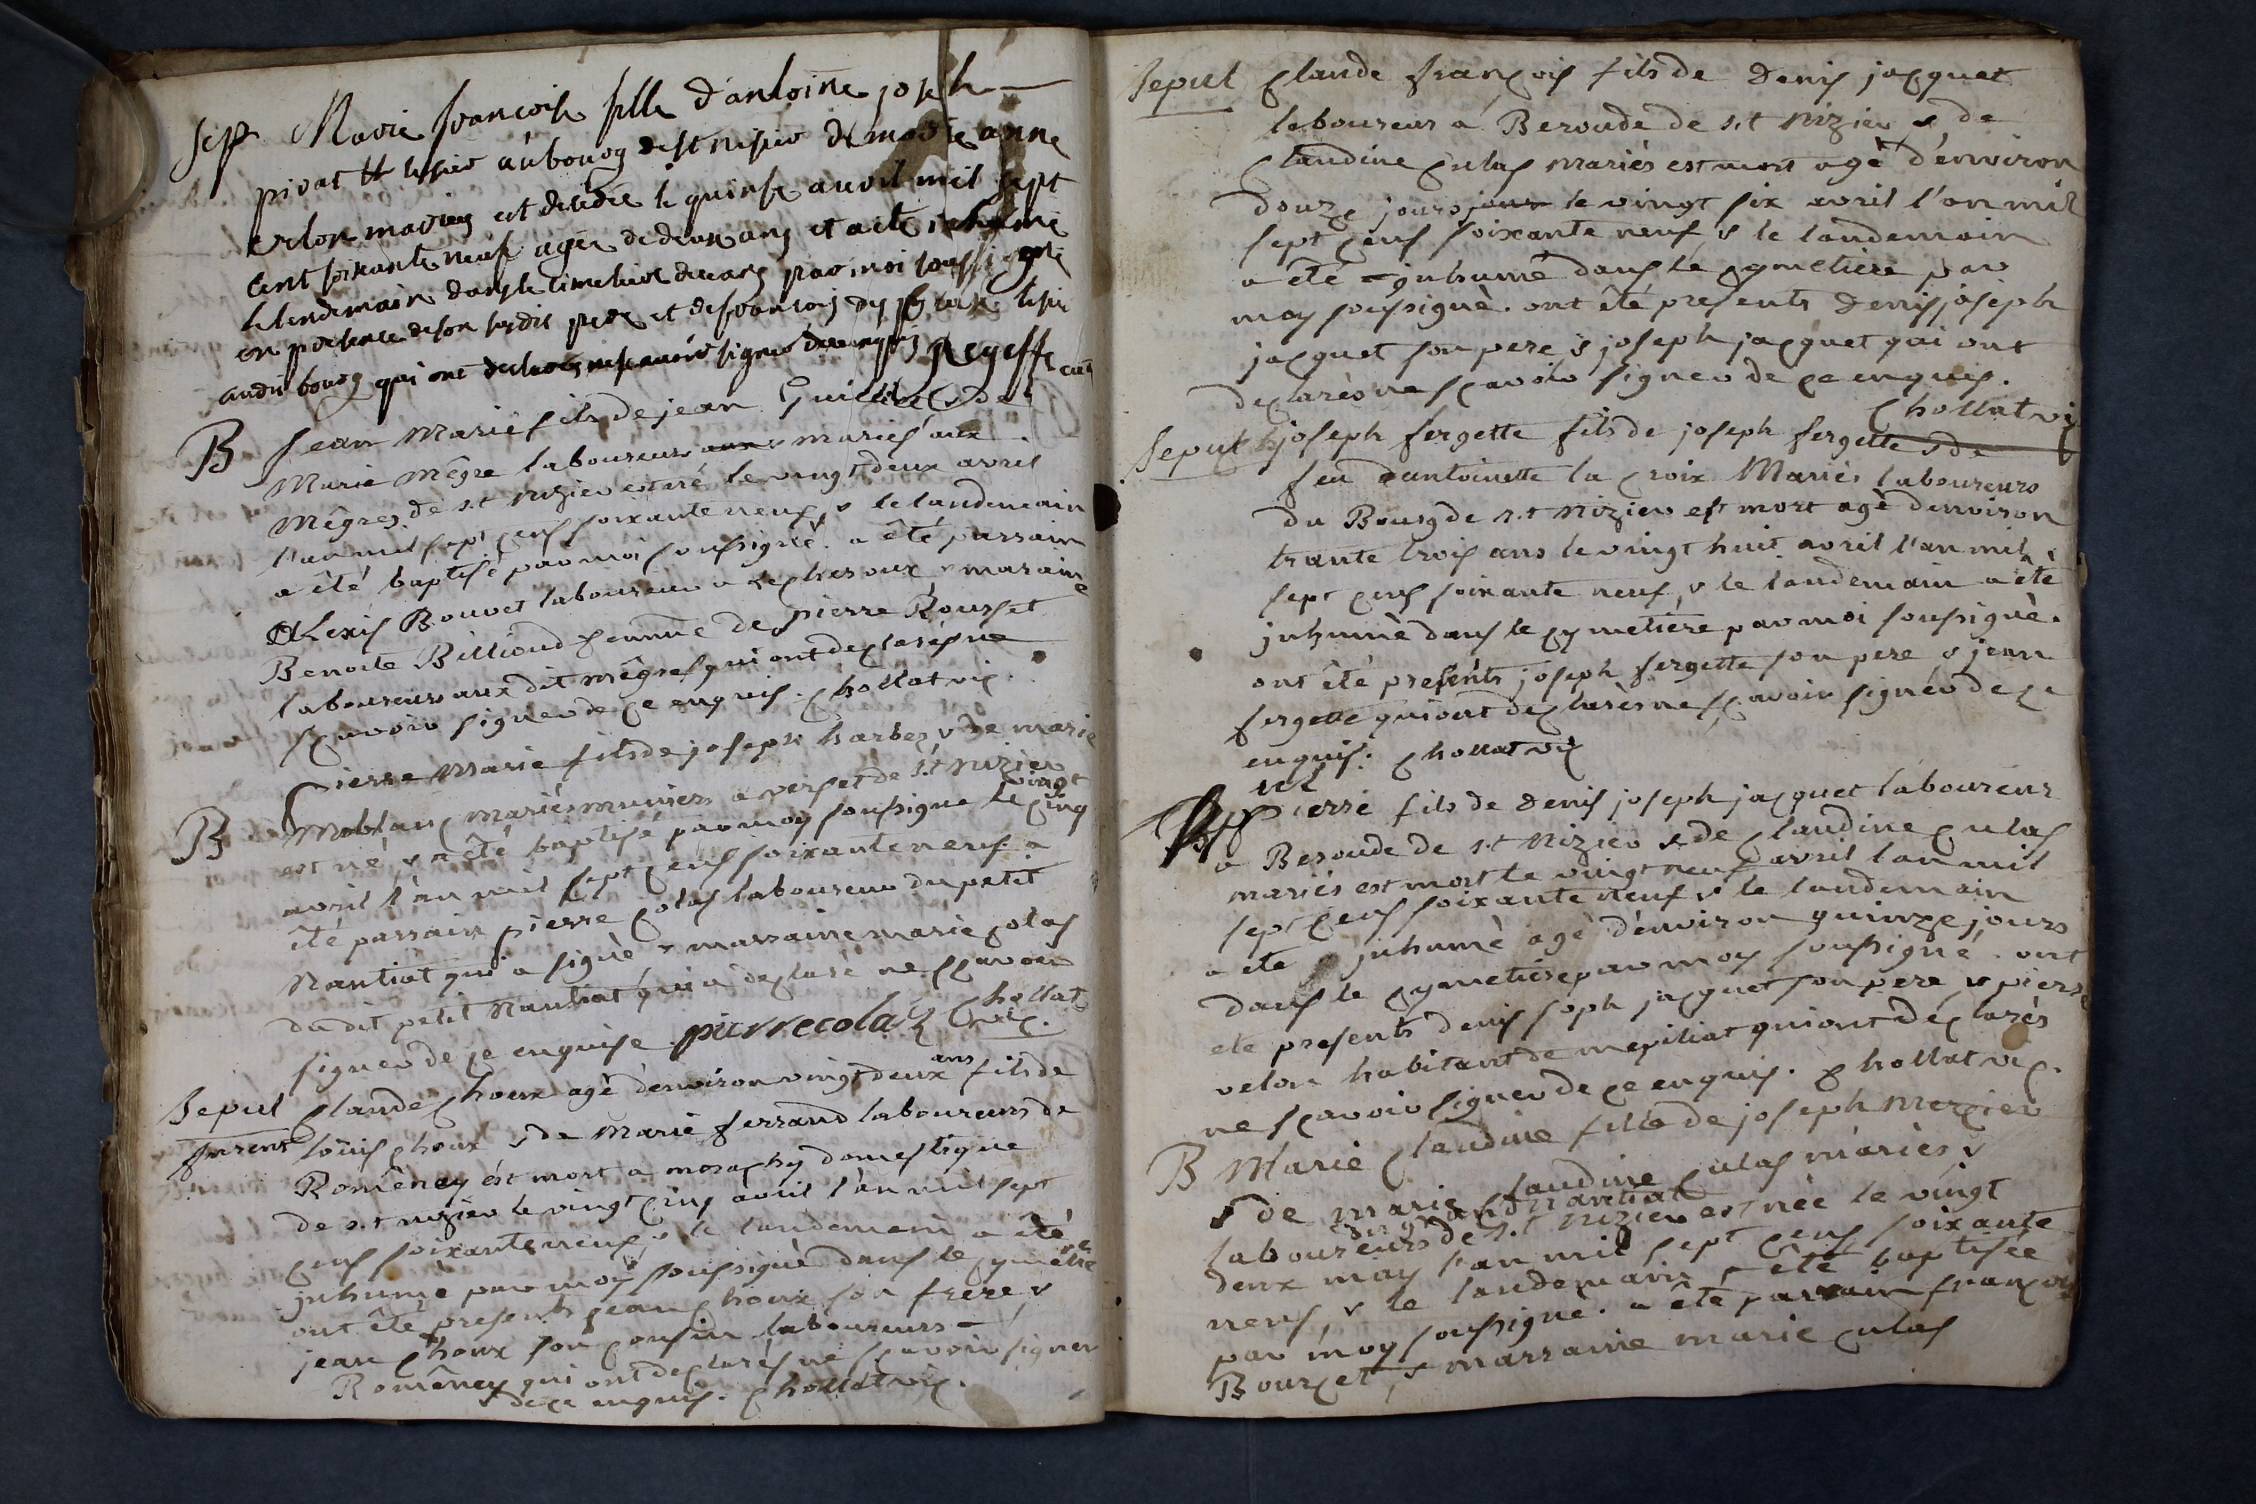 Sep Marie francoise fille d'antoine joseph
pivat tessier au bourg de st nisier de marie anne
velon mariez est decedée le quinse avril mil sept
cent soixante neuf agée de deux ans et a été inhumé
le lendemain dans le cimetiere de ceans par moi soussigné
en presence de son susdit pere et de francois
audit bourg qui ont declarés ne scavoir signer de ce enquis Regeffe curé
B Jean Marie fils de jean Guillet & de
Marie mêgre laboureurs mariés aux
Mêgres de s.t nizier est né le vingt deux avril
l'an mil sept cens soixante neuf, & le landemain
a êté baptisé par moi soussigné. a êté parrain
Alexis Bouvet laboureur a & maraine
Benoite Billioud femme de pierre Rousset
laboureurs aux dit mêgres qui ont declarés ne
sçavoir signer de ce enquis. Chollat vic.
B Pierre Marie fils de joseph harbez & de marie
Moblanc mariés muniers a verset de s.t Nizier
est né & a êté baptisé par moy soussigné le vingt cinq
avril l'an mil sept cens soixante neuf. a
êté parrain pierre colas laboureur du petit
Nantiat qui a signé & marraine marie colas
du dit petit Nantiat qui a declaré ne sçavoir
signer de ce enquise. pierre colas Chollat vic.
Sepul Claude choux agé d'environ vingt deux ans fils de
furent loüis choux & de Marie ferrand laboureurs de
Romênay ést mort a morachy domestique
de s.t nizier le vingt cinq avril l'an mil sept
cens soixante neuf, & le landemain a êté
juhumé par moy soussigné dans le cymetiere
ont êté presents jean choux son frere &
jean choux son cousin laboureurs a
Romêney qui ont declarés ne sçavoir signer
de ce enquis. Chollat vic.
Sepul Claude françois fils de Denis jacquet
laboureur á Beroude de s.t Nizier & de
Claudine Culas mariés est mort agé d'environ
douze jours le vingt six avril l'an mil
sept cens soixante neuf & le landemain
a êté juhumé dans le cymetiere par
moy soussigné. ont êté presents Denis joseph
jacquet son pere & joseph jacquet qui ont
declarés ne sçavoir signer de ce enquis.
Chollat vic
Sepul joseph fergette fils de joseph fergette & de
feu d'antoinette la croix Mariés laboureurs
du Bourg de s.t nizier est mort agé denviron
trante trois ans le vingt huit avril l'an mil
sept cens soixante neuf & le landemain a êté
juhumé dans le cymetiere par moi soussigné.
ont êté presents joseph fergette son pere & jean
fergette qui ont declarés ne sçavoir signer de ce
enquis. Chollat vic
Sepul Pierre fils de Denis joseph jacquet laboureur
a Beroude de s.t Nizier & de Claudine Culas
mariés est mort le vingt neuf avril l'an mil
sept cens soixante neuf & le landemain
a ete juhumé agé d'environ quinze jours
dans le cymetiere par moy soussigné. ont
ete presents denis joseph jacquet son pere & pierre
velon habitant de mepiliat qui ont declarés
ne sçavoir signer de ce enquis. Chollat vic.
B Marie Claudine fille de joseph Mercier
& de marie Claudine Culas mariés &
du grand Nantiat
laboureurs de s.t Nizier est née le vingt
deux may l'an mil sept cens soixante
neuf, & le landemain a êté baptisée
par moy soussigné. a êté parrain françois
Bourcet, & marraine marie culas